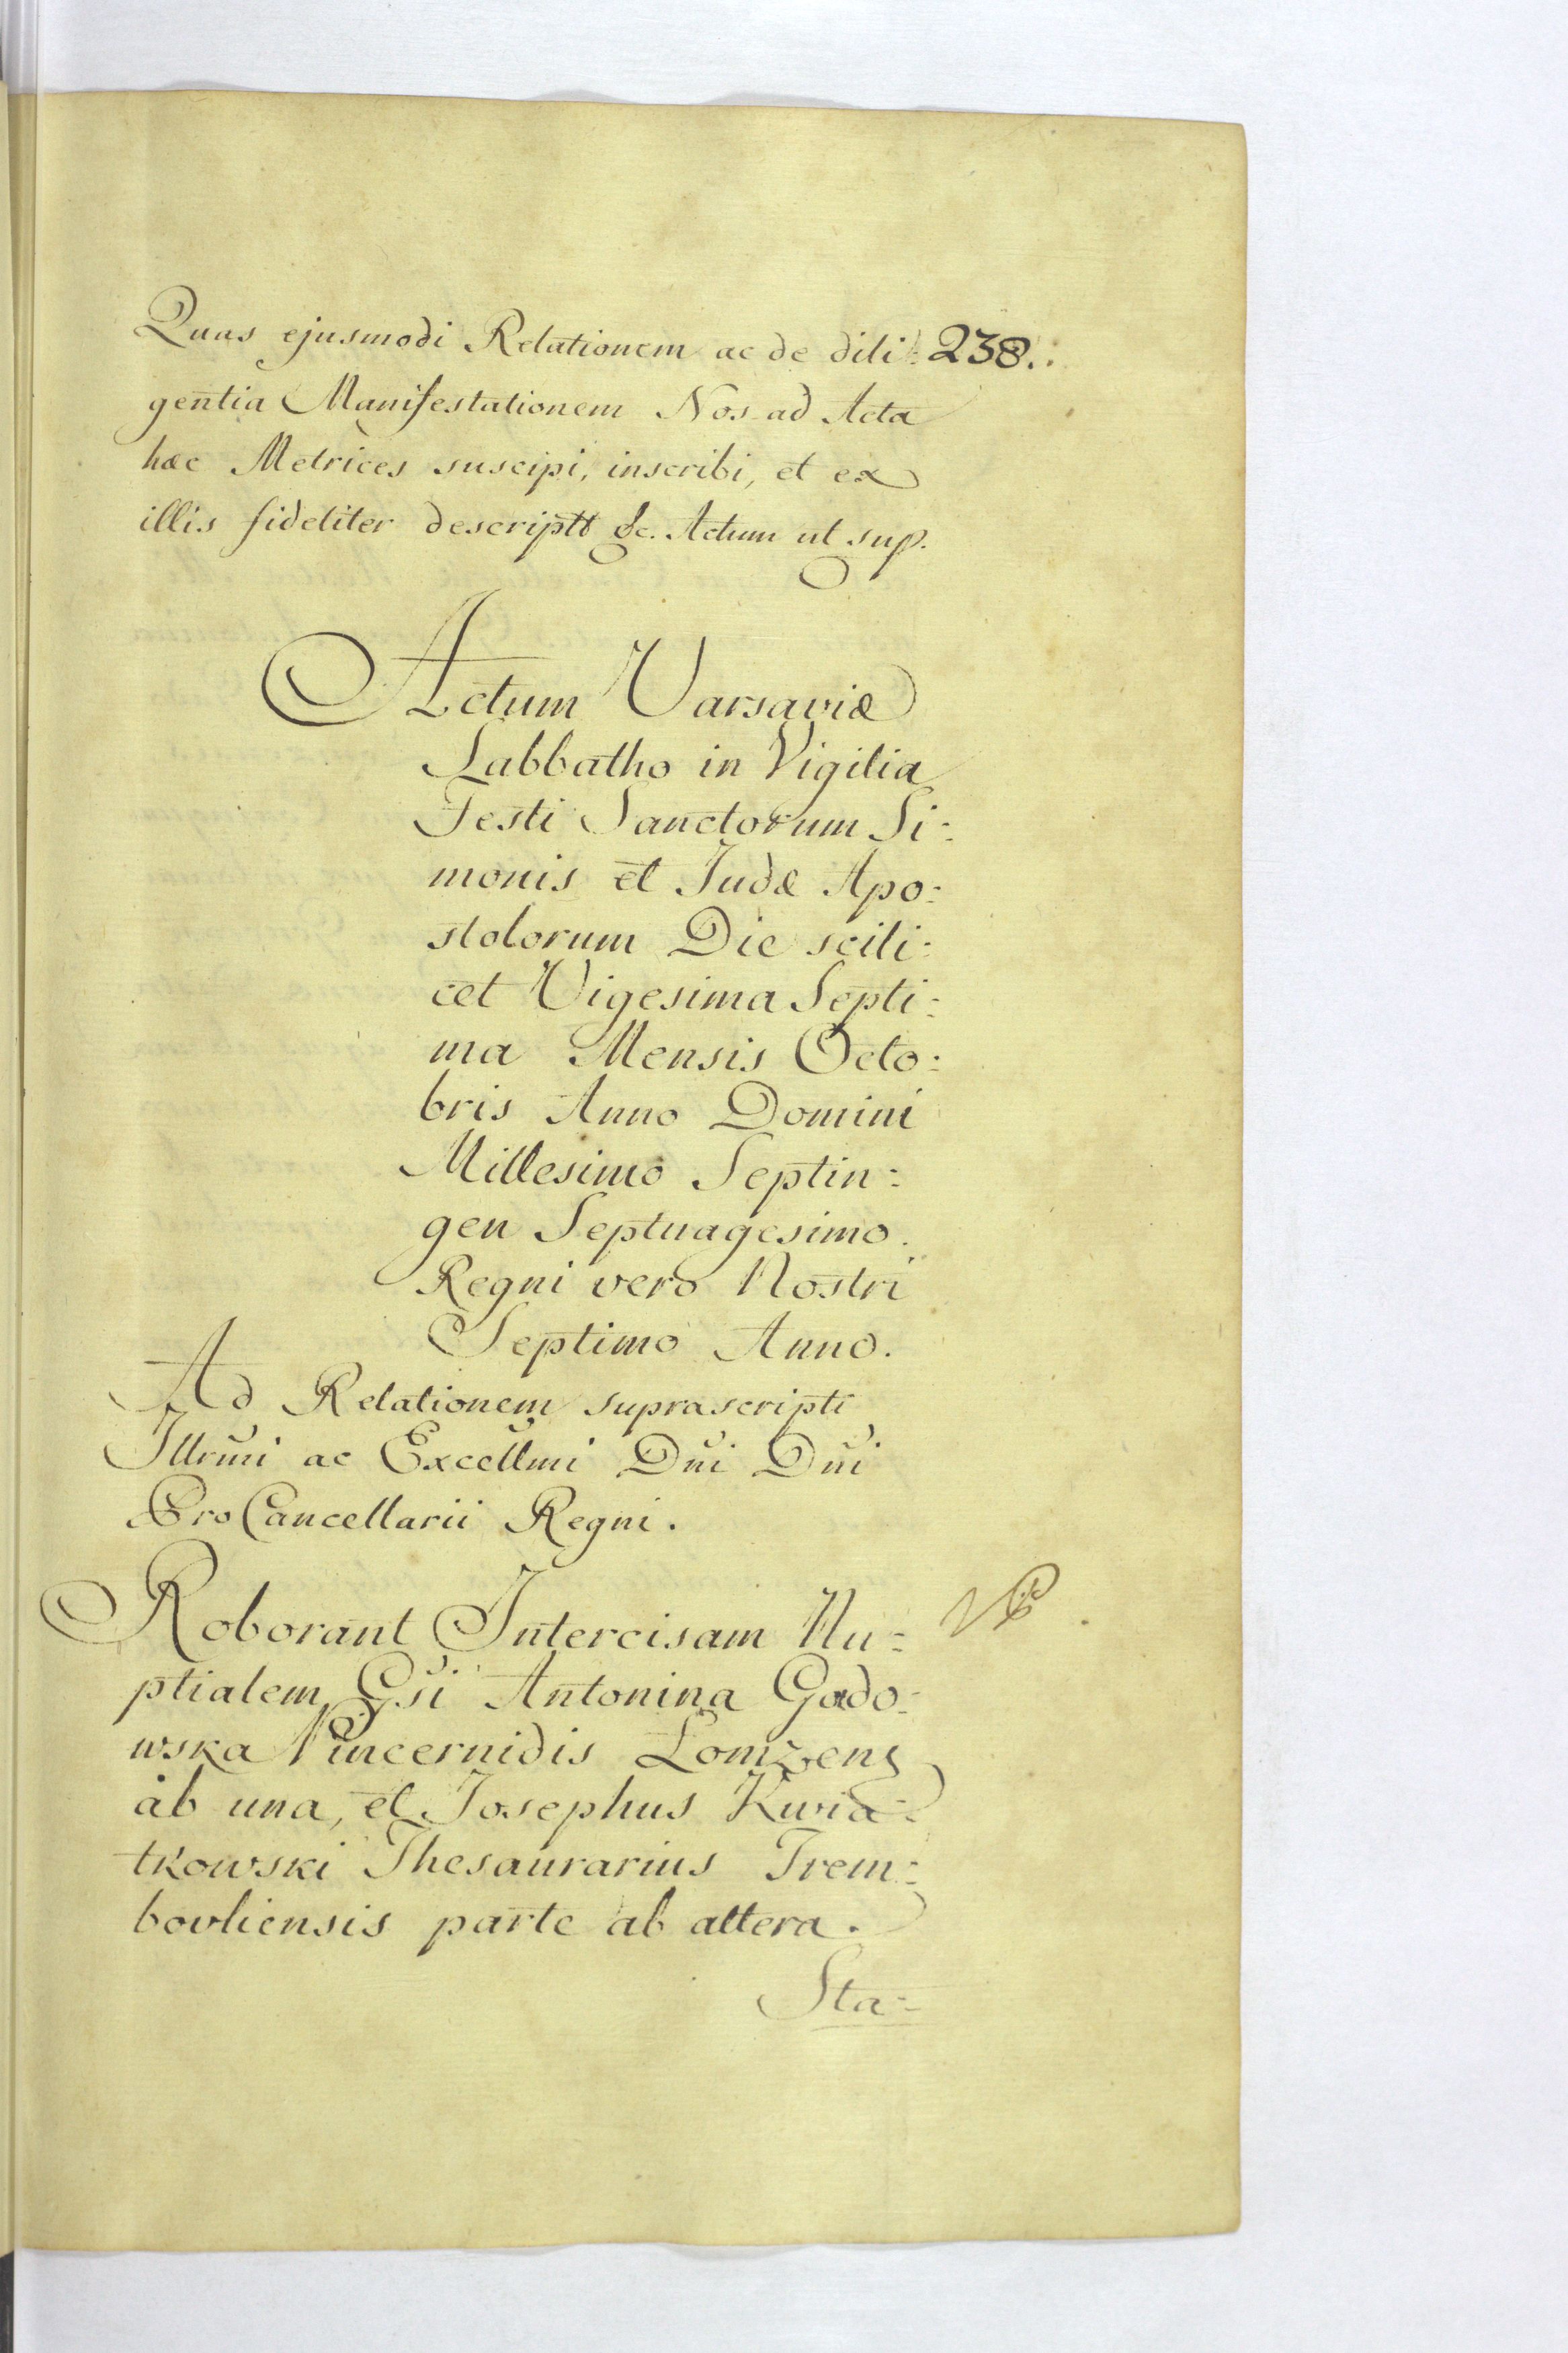 Quas ejusmodi Relationem ac de dili: 238.
gentia Manifestationem Nos ad Acta
hæc Metrices suscipi, inscribi, et ex
illis fideliter descriptt &c. Actum ut sup.
Actum Varsaviæ
Sabbatho in Vigilia
Festi Sanctorum Si:
monis et Judæ Apo:
stolorum Die scili:
cet Vigesima Septi:
ma Mensis Octo:
bris Anno Domini
Millesimo Septin:
gen Septuagesimo.
Regni vero Nostri
Septimo Anno.
Ad Relationem suprascripti
Illrmi ac Excellmi Dni Dni
ProCancellarii Regni.
Roborant Intercisam Nu:
ptialem Gsi Antonina Gado:
wska Pincernidis Lomzens
ab una, et Josephus Kwia:
tkowski Thesaurarius Trem:
bovliensis parte ab altera.
Sta: